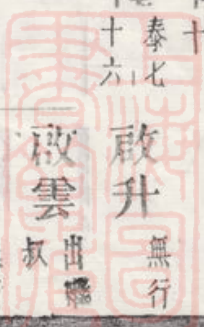 十
泰七
十六
啟升 無行
啟雲 出繼
叔